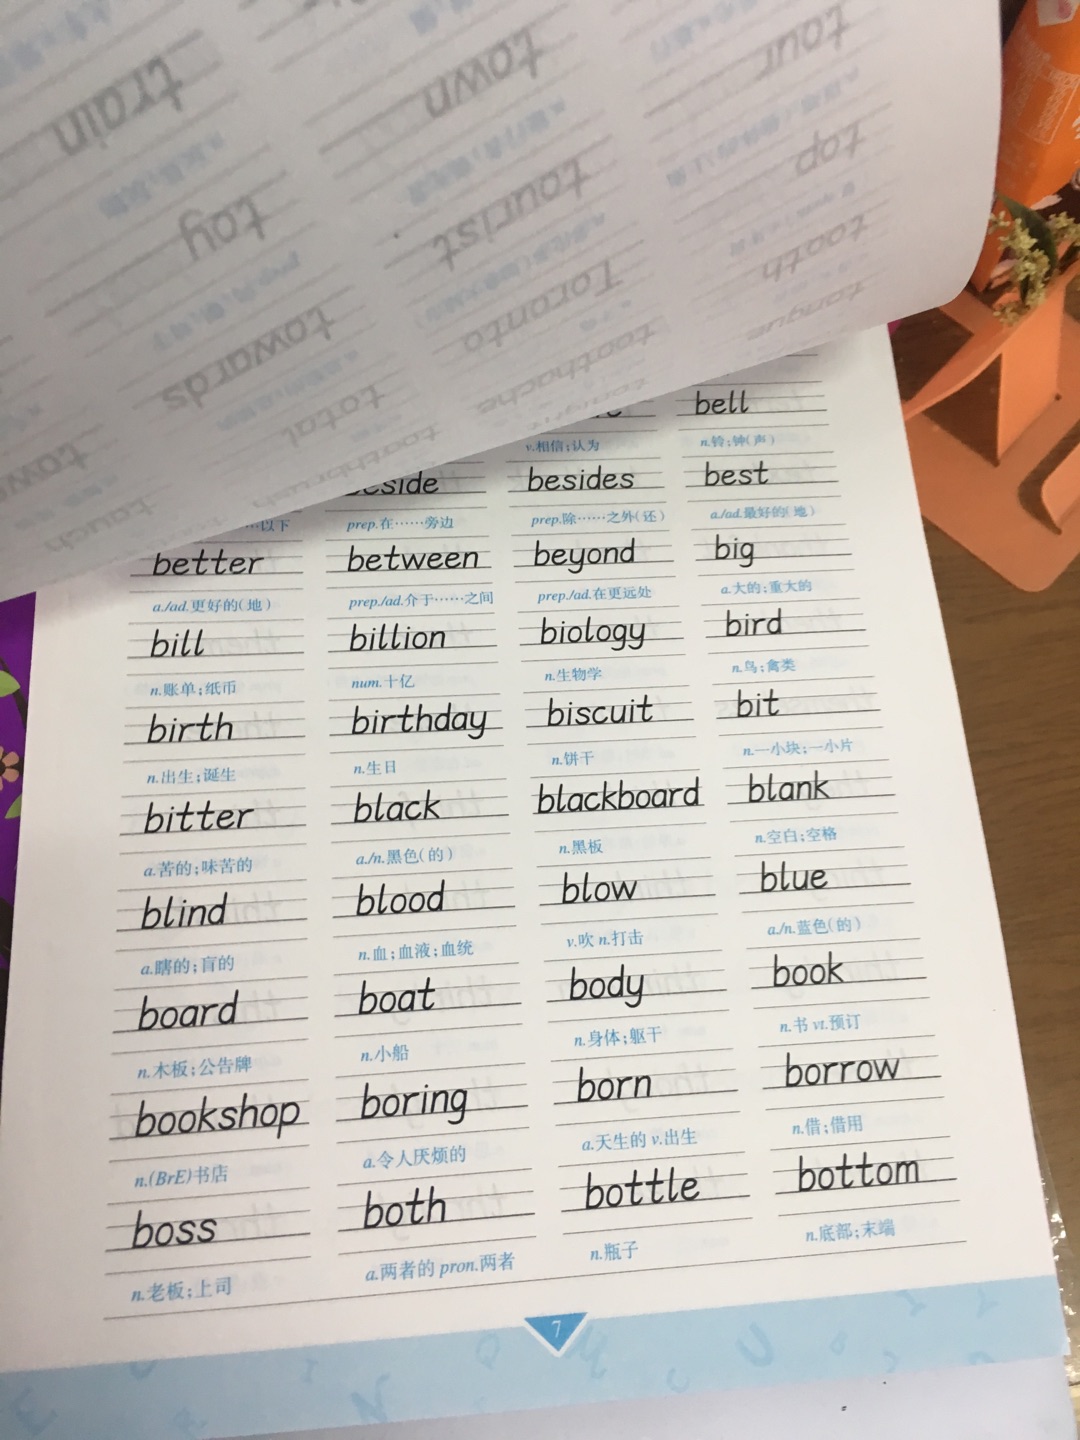 train town tour
toy tourist top
towards Toronto tooth
total toothache tongue
touch toothbrush
bell
v.相信;认为 n.铃;钟(声)
beside besides best
……以下 prep.在……旁边 prep.除……之外(还) a./ad.最好的(地)
better between beyond big
a./ad.更好的(地) prep./ad.介于……之间 prep./ad.在更远处 a.大的;重大的
bill billion biology bird
n.账单;纸币 num.十亿 n.生物学 n.鸟;禽类
birth birthday biscuit bit
n.出生;诞生 n.生日 n.饼干 n.一小块;一小片
bitter black blackboard blank
a.苦的;味苦的 a./n.黑色(的) n.黑板 n.空白;空格
blind blood blow blue
a.瞎的;盲的 n.血;血液;血统 v.吹 n.打击 a./n.蓝色(的)
board boat body book
n.木板;公告牌 n.小船 n.身体;躯干 n.书 vt.预订
bookshop boring born borrow
n.(BrE)书店 a.令人厌烦的 a.天生的 v.出生 n.借;借用
boss both bottle bottom
n.老板;上司 a.两者的 pron.两者 n.瓶子 n.底部;末端
7